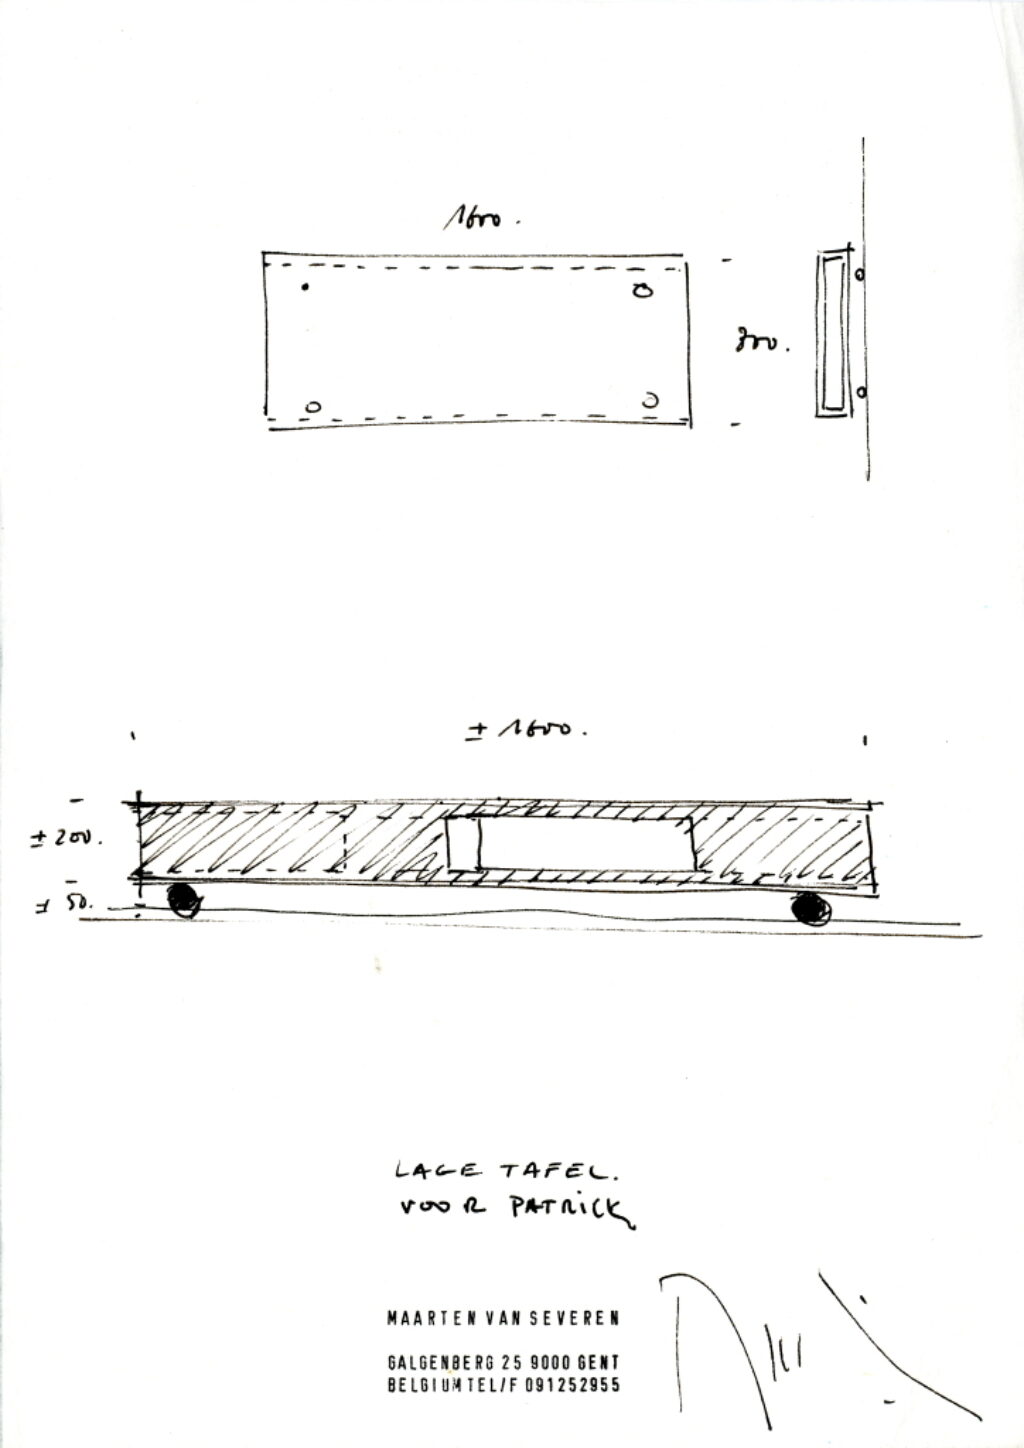 1600.
700.
± 1600.
± 200.
± 50.
LAGE TAFEL.
VOOR PATRICK
MAARTEN VAN SEVEREN
GALGENBERG 25 9000 GENT
BELGIUM TEL/F 091252955